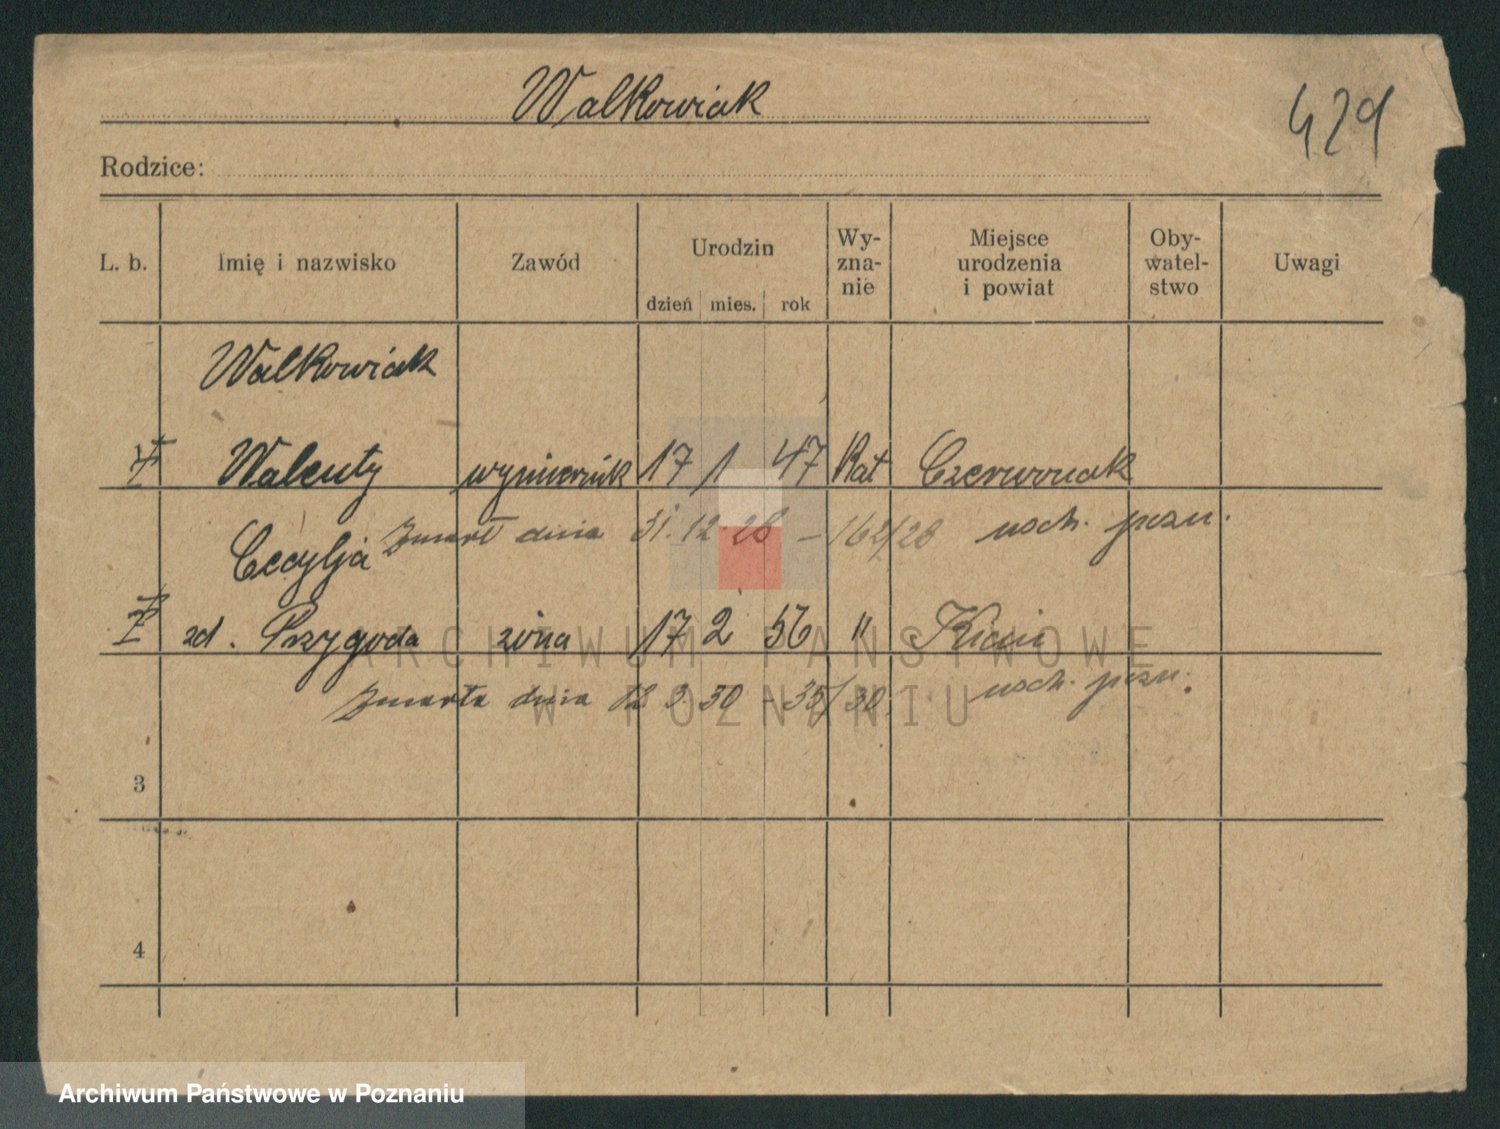 Walkowiak
429
Rodzice:
L. b. Imię i nazwisko Zawód Urodzin dzień mies. rok Wy-zna-nie Miejsce urodzenia i powiat Oby-watel-stwo Uwagi
Walkowiak
1 Walenty wymiernik 17 1 47 Kat Czerwonak
Zmarł dnia 31. 12. 28 – 162/28 wsch. pozn.
Cecylja
2 zd. Przygoda żona 17 2 56 " Kicin
Zmarła dnia 12. 3. 30 - 35/30. wsch. pozn.
3
4
ARCHIWUM PAŃSTWOWE
W POZNANIU
Archiwum Państwowe w Poznaniu